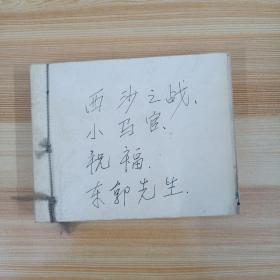 西沙之战、
小马官、
祝福.
东郭先生.